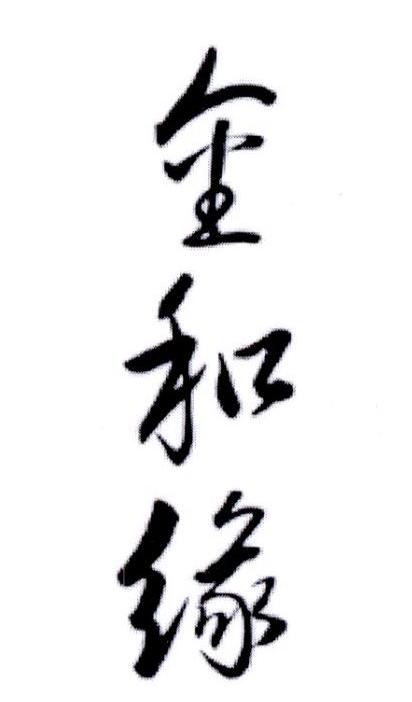 金和缘